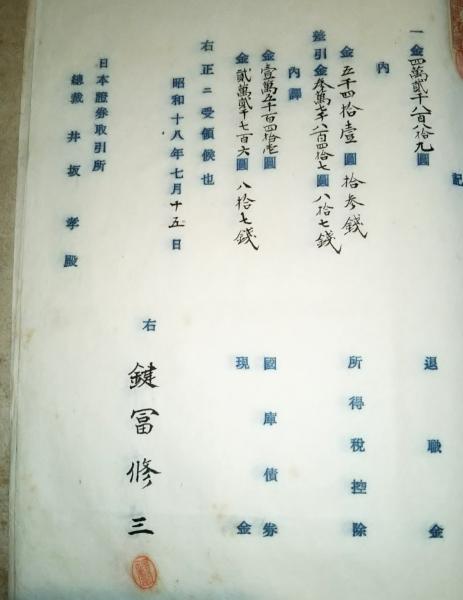 記
一金四萬貳千八百八拾九圓 退職金
内
金五千四拾壹圓拾参錢 所得税控除
差引金参萬七千八百四拾七圓八拾七錢
内譯
金壹萬五千百四拾壱圓 國庫債券
金貳萬貳千七百六圓八拾七錢 現金
右正ニ受領候也
昭和十八年七月十五日
右 鍵冨修三
日本證券取引所
總裁 井坂孝殿